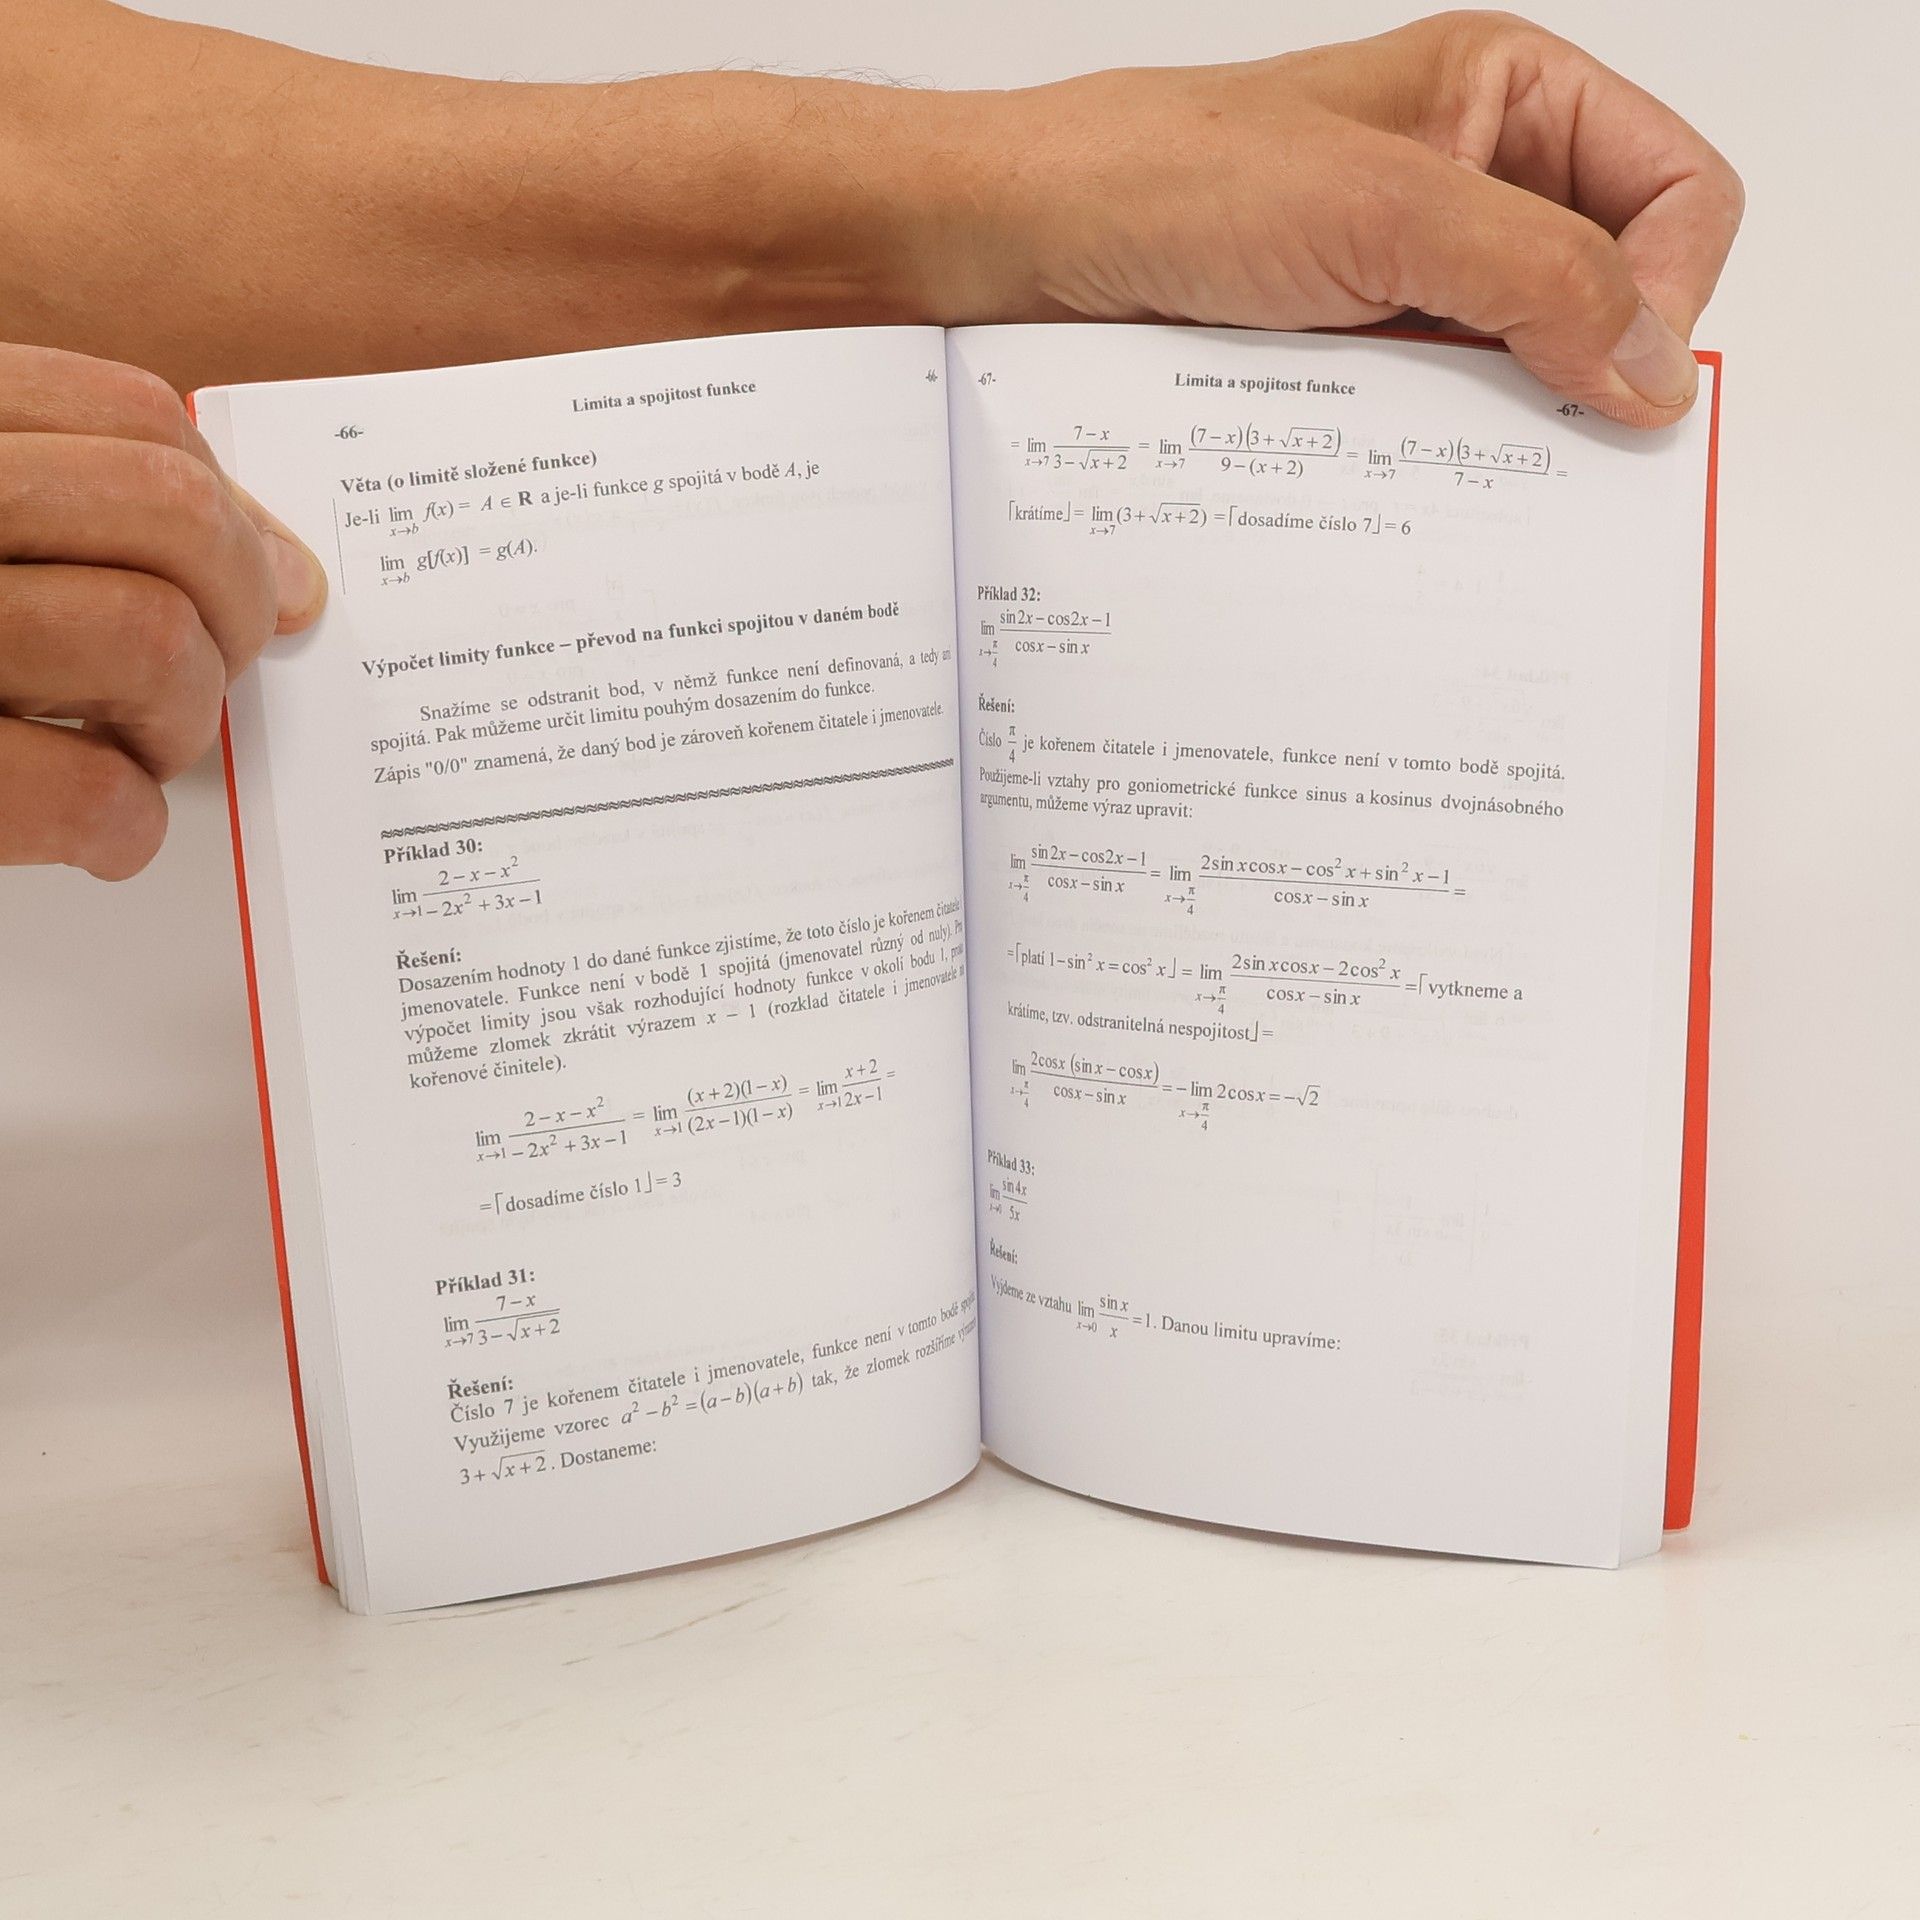 Limita a spojitost funkce
-66-
-66-
Věta (o limitě složené funkce)
Je-li lim x→b f(x) = A ∈ R a je-li funkce g spojitá v bodě A, je
lim x→b g[f(x)] = g(A).
Výpočet limity funkce – převod na funkci spojitou v daném bodě
Snažíme se odstranit bod, v němž funkce není definovaná, a tedy ani
spojitá. Pak můžeme určit limitu pouhým dosazením do funkce.
Zápis "0/0" znamená, že daný bod je zároveň kořenem čitatele i jmenovatele.
Příklad 30:
lim x→1 (2 – x – x²)/(– 2x² + 3x – 1)
Řešení:
Dosazením hodnoty 1 do dané funkce zjistíme, že toto číslo je kořenem čitatele i
jmenovatele. Funkce není v bodě 1 spojitá (jmenovatel různý od nuly). Pro
výpočet limity jsou však rozhodující hodnoty funkce v okolí bodu 1, proto
můžeme zlomek zkrátit výrazem x – 1 (rozklad čitatele i jmenovatele na
kořenové činitele).
lim x→1 (2 – x – x²)/(– 2x² + 3x – 1) = lim x→1 (x + 2)(1 – x)/(2x – 1)(1 – x) = lim x→1 (x + 2)/(2x – 1) =
=⌈dosadíme číslo 1⌋= 3
Příklad 31:
lim x→7 (7 – x)/(3 – √(x + 2))
Řešení:
Číslo 7 je kořenem čitatele i jmenovatele, funkce není v tomto bodě spojitá.
Využijeme vzorec a² – b² = (a – b)(a + b) tak, že zlomek rozšíříme výrazem
3 + √(x + 2). Dostaneme:
-67-
Limita a spojitost funkce
-67-
= lim x→7 (7 – x)/(3 – √(x + 2)) = lim x→7 (7 – x)(3 + √(x + 2))/(9 – (x + 2)) = lim x→7 (7 – x)(3 + √(x + 2))/(7 – x) =
⌈krátíme⌋= lim x→7 (3 + √(x + 2)) =⌈dosadíme číslo 7⌋= 6
Příklad 32:
lim x→π/4 (sin2x – cos2x – 1)/(cosx – sin x)
Řešení:
Číslo π/4 je kořenem čitatele i jmenovatele, funkce není v tomto bodě spojitá.
Použijeme-li vztahy pro goniometrické funkce sinus a kosinus dvojnásobného
argumentu, můžeme výraz upravit:
lim x→π/4 (sin2x – cos2x – 1)/(cosx – sin x) = lim x→π/4 (2sin xcosx – cos² x + sin² x – 1)/(cosx – sin x) =
=⌈platí 1–sin² x = cos² x⌋= lim x→π/4 (2sin xcosx – 2cos² x)/(cosx – sin x) =⌈vytkneme a
krátíme, tzv. odstranitelná nespojitost⌋=
lim x→π/4 2cosx (sin x – cosx)/(cosx – sin x) = – lim x→π/4 2cosx = –√2
Příklad 33:
lim x→0 sin 4x/5x
Řešení:
Vyjdeme ze vztahu lim x→0 sin x/x = 1. Danou limitu upravíme: